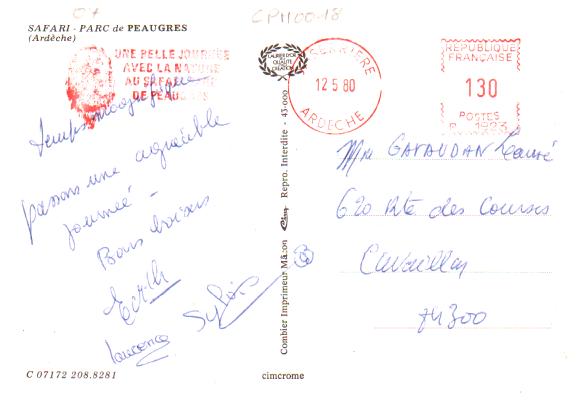 07
CPM00-18
SAFARI - PARC de PEAUGRES
(Ardèche)
UNE BELLE JOURNÉE
AVEC LA NATURE
AU SAFARI
DE PEAUGRES
LAURIER D'OR
QUALITÉ
CRÉATION
12 5 80
ARDECHE
RÉPUBLIQUE
FRANÇAISE
130
POSTES
temps magnifique
passons une agréable
journée -
Bons baisers
Edith
Laurence Sylvie
Combier Imprimeur Mâcon
Repro. Interdite - 43.000
Mme GAVAUDAN
620 Rte des Courses
Cavaillon
84300
C 07172 208.8281
cimcrome